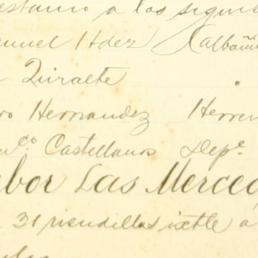 estamo a los siguie
nuel Hdez (Albañi
Quiralte
ro Hernandez Herrer
co Castellanos Depe
bor Las Merced
31 riendillas ixtle á